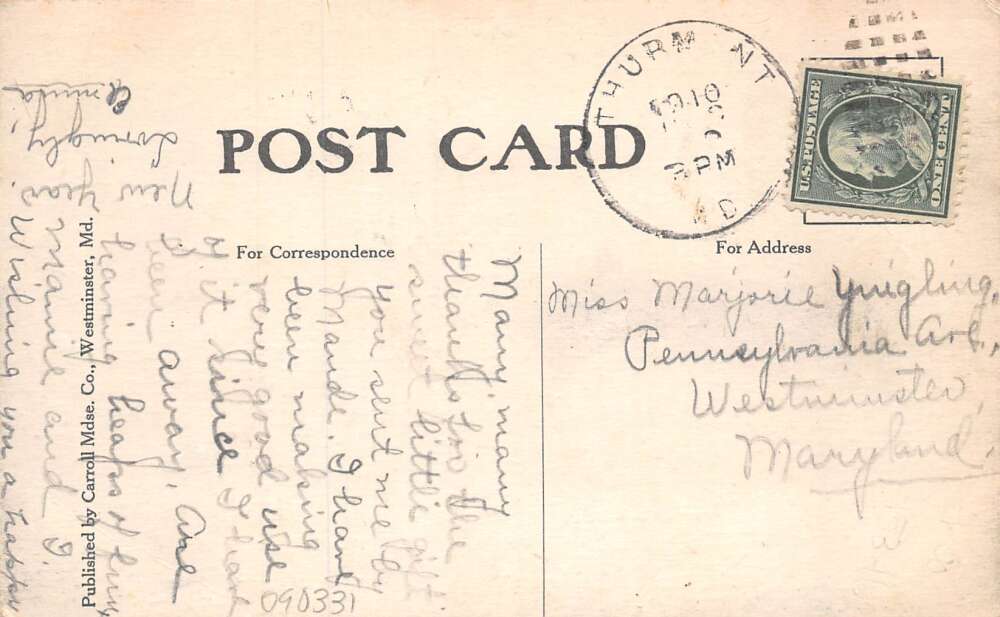 POST CARD
THURM NT
10
PM
D
U.S. POSTAGE
ONE CENT
For Correspondence
For Address
Many, many
thanks for the
sweet little gift
you sent me by
Maude. I have
been making
very good use
of it since I have
been away. Are
having heaps of fun,
Mamie and I.
Wishing you a happy
New Year.
Lovingly,
Miss Marjorie Yingling,
Pennsylvania Ave.,
Westminster,
Maryland.
Published by Carroll Mdse. Co., Westminster, Md.
090331